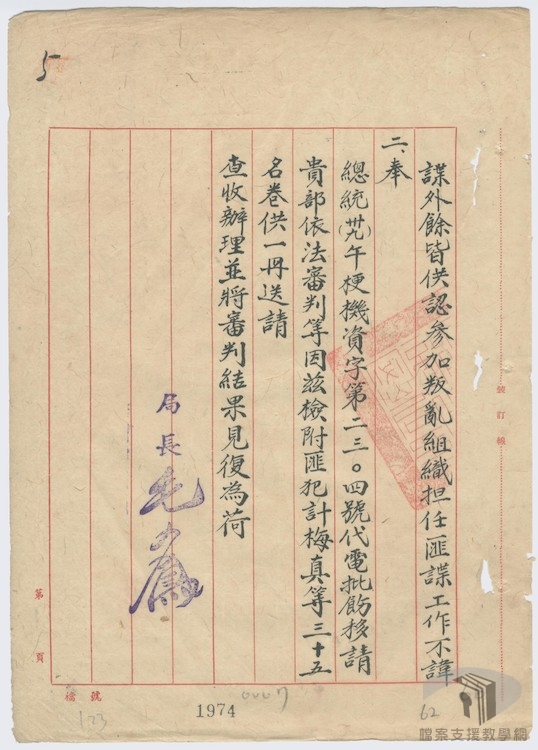 5
諜外餘皆供認參加叛亂組織担任匪諜工作不諱
二、奉
總統(卅九)午梗機資字第二三〇四號代電批飭移請
貴部依法審判等因茲檢附匪犯計梅真等三十五
名卷供一冊送請
查收辦理並將審判結果見復為荷
局長
號訂線
第 頁
檔 號
123
1974
0007
62
檔案支援教學網